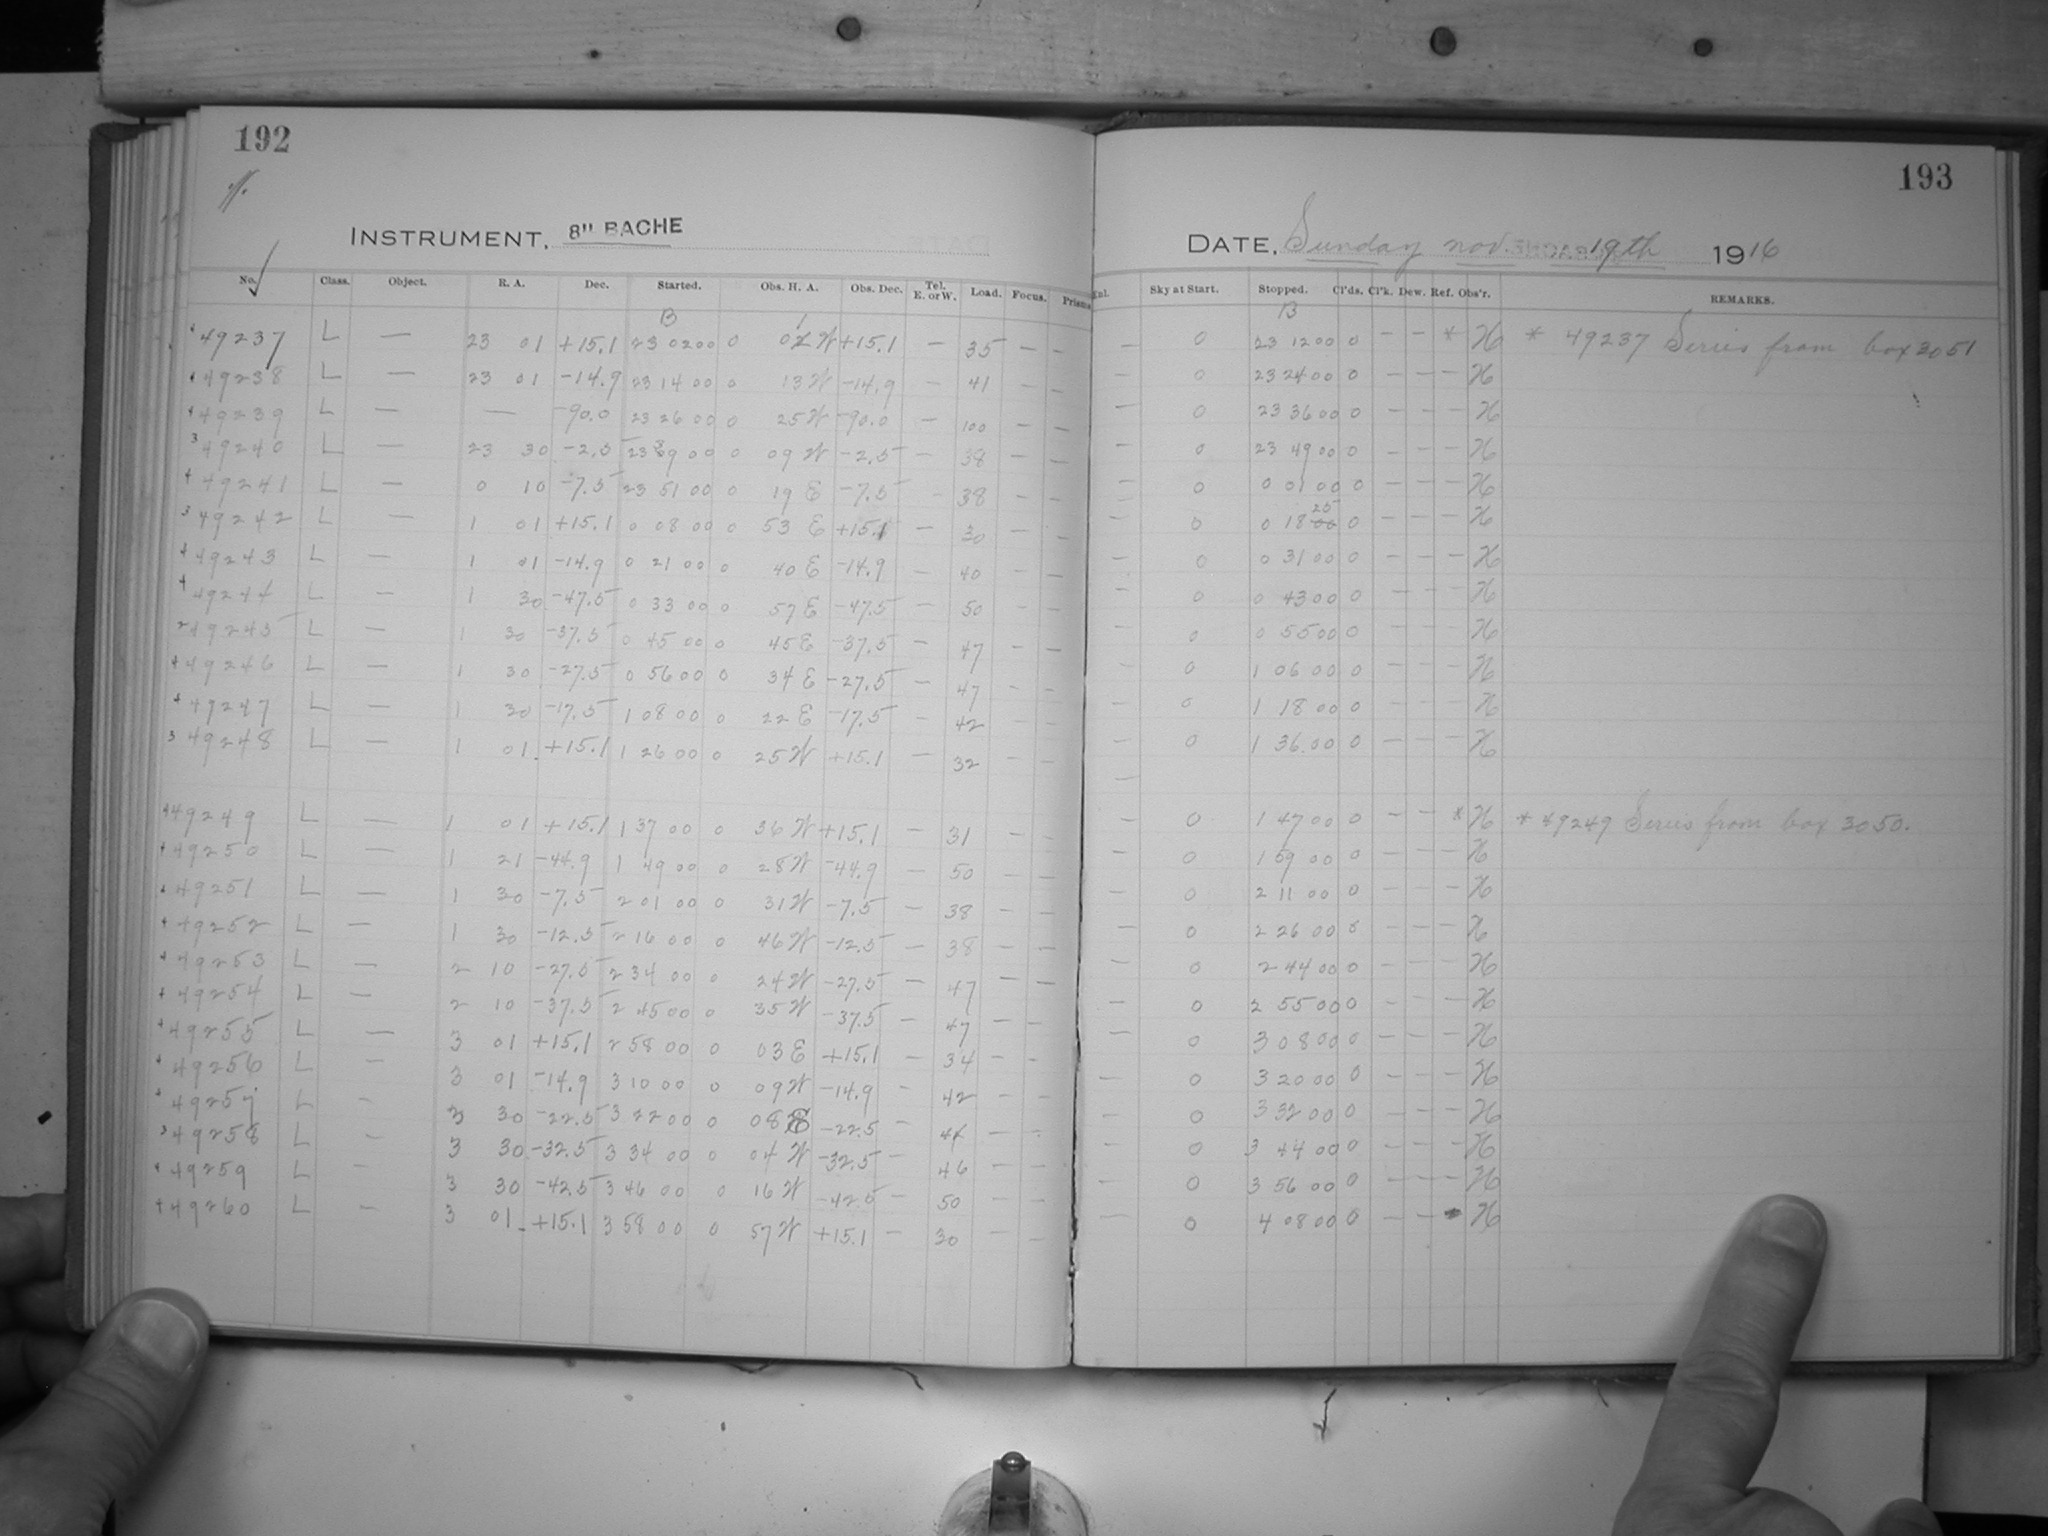 192
193
INSTRUMENT, 8" BACHE
DATE, Sunday nov. 19th 1916
No. Class. Object. R. A. Dec. Started. Obs. H. A. Obs. Dec. Tel. E. or W. Load. Focus. Prisms Sky at Start. Stopped. Cl'ds. Cl'k. Dew. Ref. Obs'r. REMARKS.
B B
4 49237 L — 23 01 +15.1 23 02 00 0 02 W +15.1 — 35 — — — 0 23 12 00 0 — — * H * 49237 Series from box 3051
4 49238 L — 23 01 -14.9 23 14 00 0 13 W -14.9 — 41 — — — 0 23 24 00 0 — — — H
4 49239 L — — -90.0 23 26 00 0 25 W -90.0 — 100 — — — 0 23 36 00 0 — — — H
3 49240 L — 23 30 -2.5 23 39 00 0 09 W -2.5 — 38 — — — 0 23 49 00 0 — — — H
4 49241 L — 0 10 -7.5 23 51 00 0 19 E -7.5 — 38 — — — 0 0 01 00 0 — — — H
3 49242 L — 1 01 +15.1 0 08 00 0 53 E +15.1 — 30 — — — 0 0 18 25 0 — — — H
4 49243 L — 1 01 -14.9 0 21 00 0 40 E -14.9 — 40 — — — 0 0 31 00 0 — — — H
4 49244 L — 1 30 -47.5 0 33 00 0 57 E -47.5 — 50 — — — 0 0 43 00 0 — — — H
2 49245 L — 1 30 -37.5 0 45 00 0 45 E -37.5 — 47 — — — 0 0 55 00 0 — — — H
4 49246 L — 1 30 -27.5 0 56 00 0 34 E -27.5 — 47 — — — 0 1 06 00 0 — — — H
4 49247 L — 1 30 -17.5 1 08 00 0 22 E -17.5 — 42 — — — 0 1 18 00 0 — — — H
3 49248 L — 1 01 +15.1 1 26 00 0 25 W +15.1 — 32 — — — 0 1 36 00 0 — — — H
4 49249 L — 1 01 +15.1 1 37 00 0 36 W +15.1 — 31 — — — 0 1 47 00 0 — — * H * 49249 Series from box 3050.
4 49250 L — 1 21 -44.9 1 49 00 0 28 W -44.9 — 50 — — 0 1 59 00 0 — — — H
49251 L — 1 30 -7.5 2 01 00 0 31 W -7.5 — 38 — — — 0 2 11 00 0 — — — H
4 49252 L — 1 30 -12.5 2 16 00 0 46 W -12.5 — 38 — — — 0 2 26 00 0 — — — H
4 49253 L — 2 10 -27.5 2 34 00 0 24 W -27.5 — 47 — — — 0 2 44 00 0 — — — H
4 49254 L — 2 10 -37.5 2 45 00 0 35 W -37.5 — 47 — — — 0 2 55 00 0 — — — H
4 49255 L — 3 01 +15.1 2 58 00 0 03 E +15.1 — 34 — — — 0 3 08 00 0 — — — H
4 49256 L — 3 01 -14.9 3 10 00 0 09 W -14.9 — 42 — — — 0 3 20 00 0 — — — H
4 49257 L — 3 30 -22.5 3 22 00 0 08 E -22.5 — 44 — — — 0 3 32 00 0 — — — H
3 49258 L — 3 30 -32.5 3 34 00 0 04 W -32.5 — 46 — — — 0 3 44 00 0 — — — H
4 49259 L — 3 30 -42.5 3 46 00 0 16 W -42.5 — 50 — — — 0 3 56 00 0 — — — H
4 49260 L — 3 01 +15.1 3 58 00 0 57 W +15.1 — 30 — — — 0 4 08 00 0 — — H